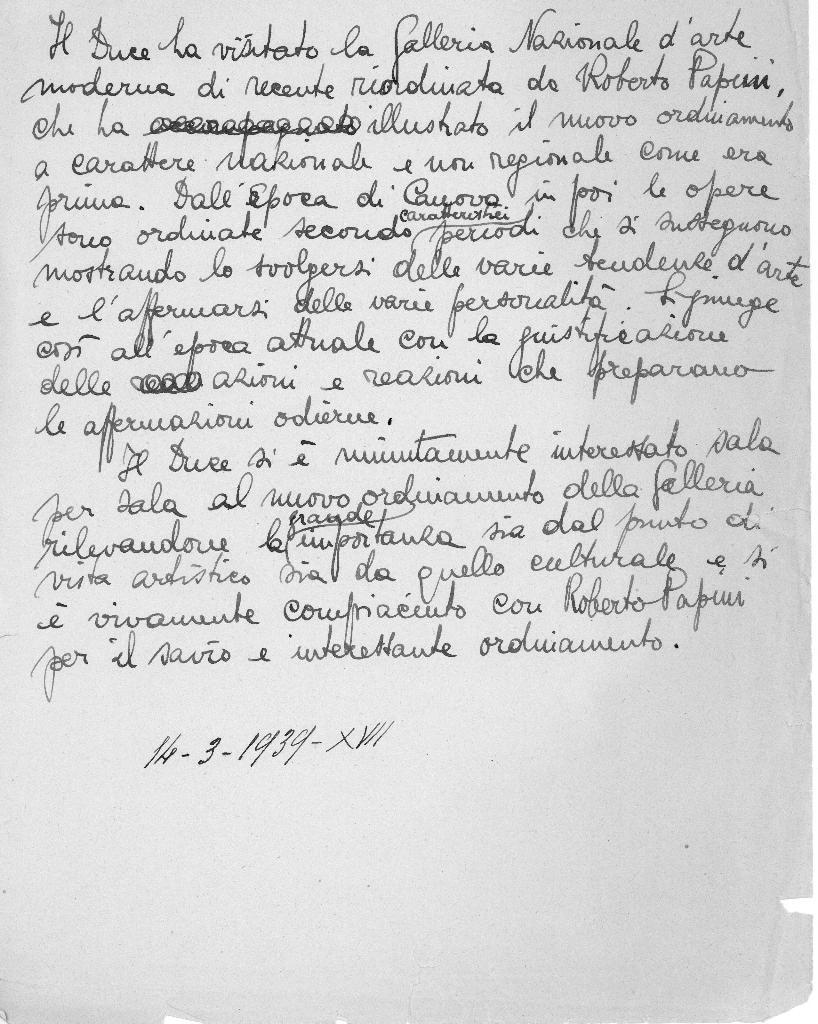 Il Duce ha visitato la Galleria Nazionale d'arte
moderna di recente riordinata da Roberto Papini,
che ha illustrato il nuovo ordinamento
a carattere nazionale e non regionale come era
prima. Dall'Epoca di Canova in poi le opere
sono ordinate secondo caratteristici periodi che si susseguono
mostrando lo svolgersi delle varie tendenze d'arte
e l'affermarsi delle varie personalità. Si giunge
così all'epoca attuale con la giustificazione
delle azioni e reazioni che preparano
le affermazioni odierne.
Il Duce si è minutamente interessato sala
per sala al nuovo ordinamento della Galleria
rilevandone la grande importanza sia dal punto di
vista artistico sia da quello culturale e si
è vivamente compiaciuto con Roberto Papini
per il savio e interessante ordinamento.
14-3-1939-XVII